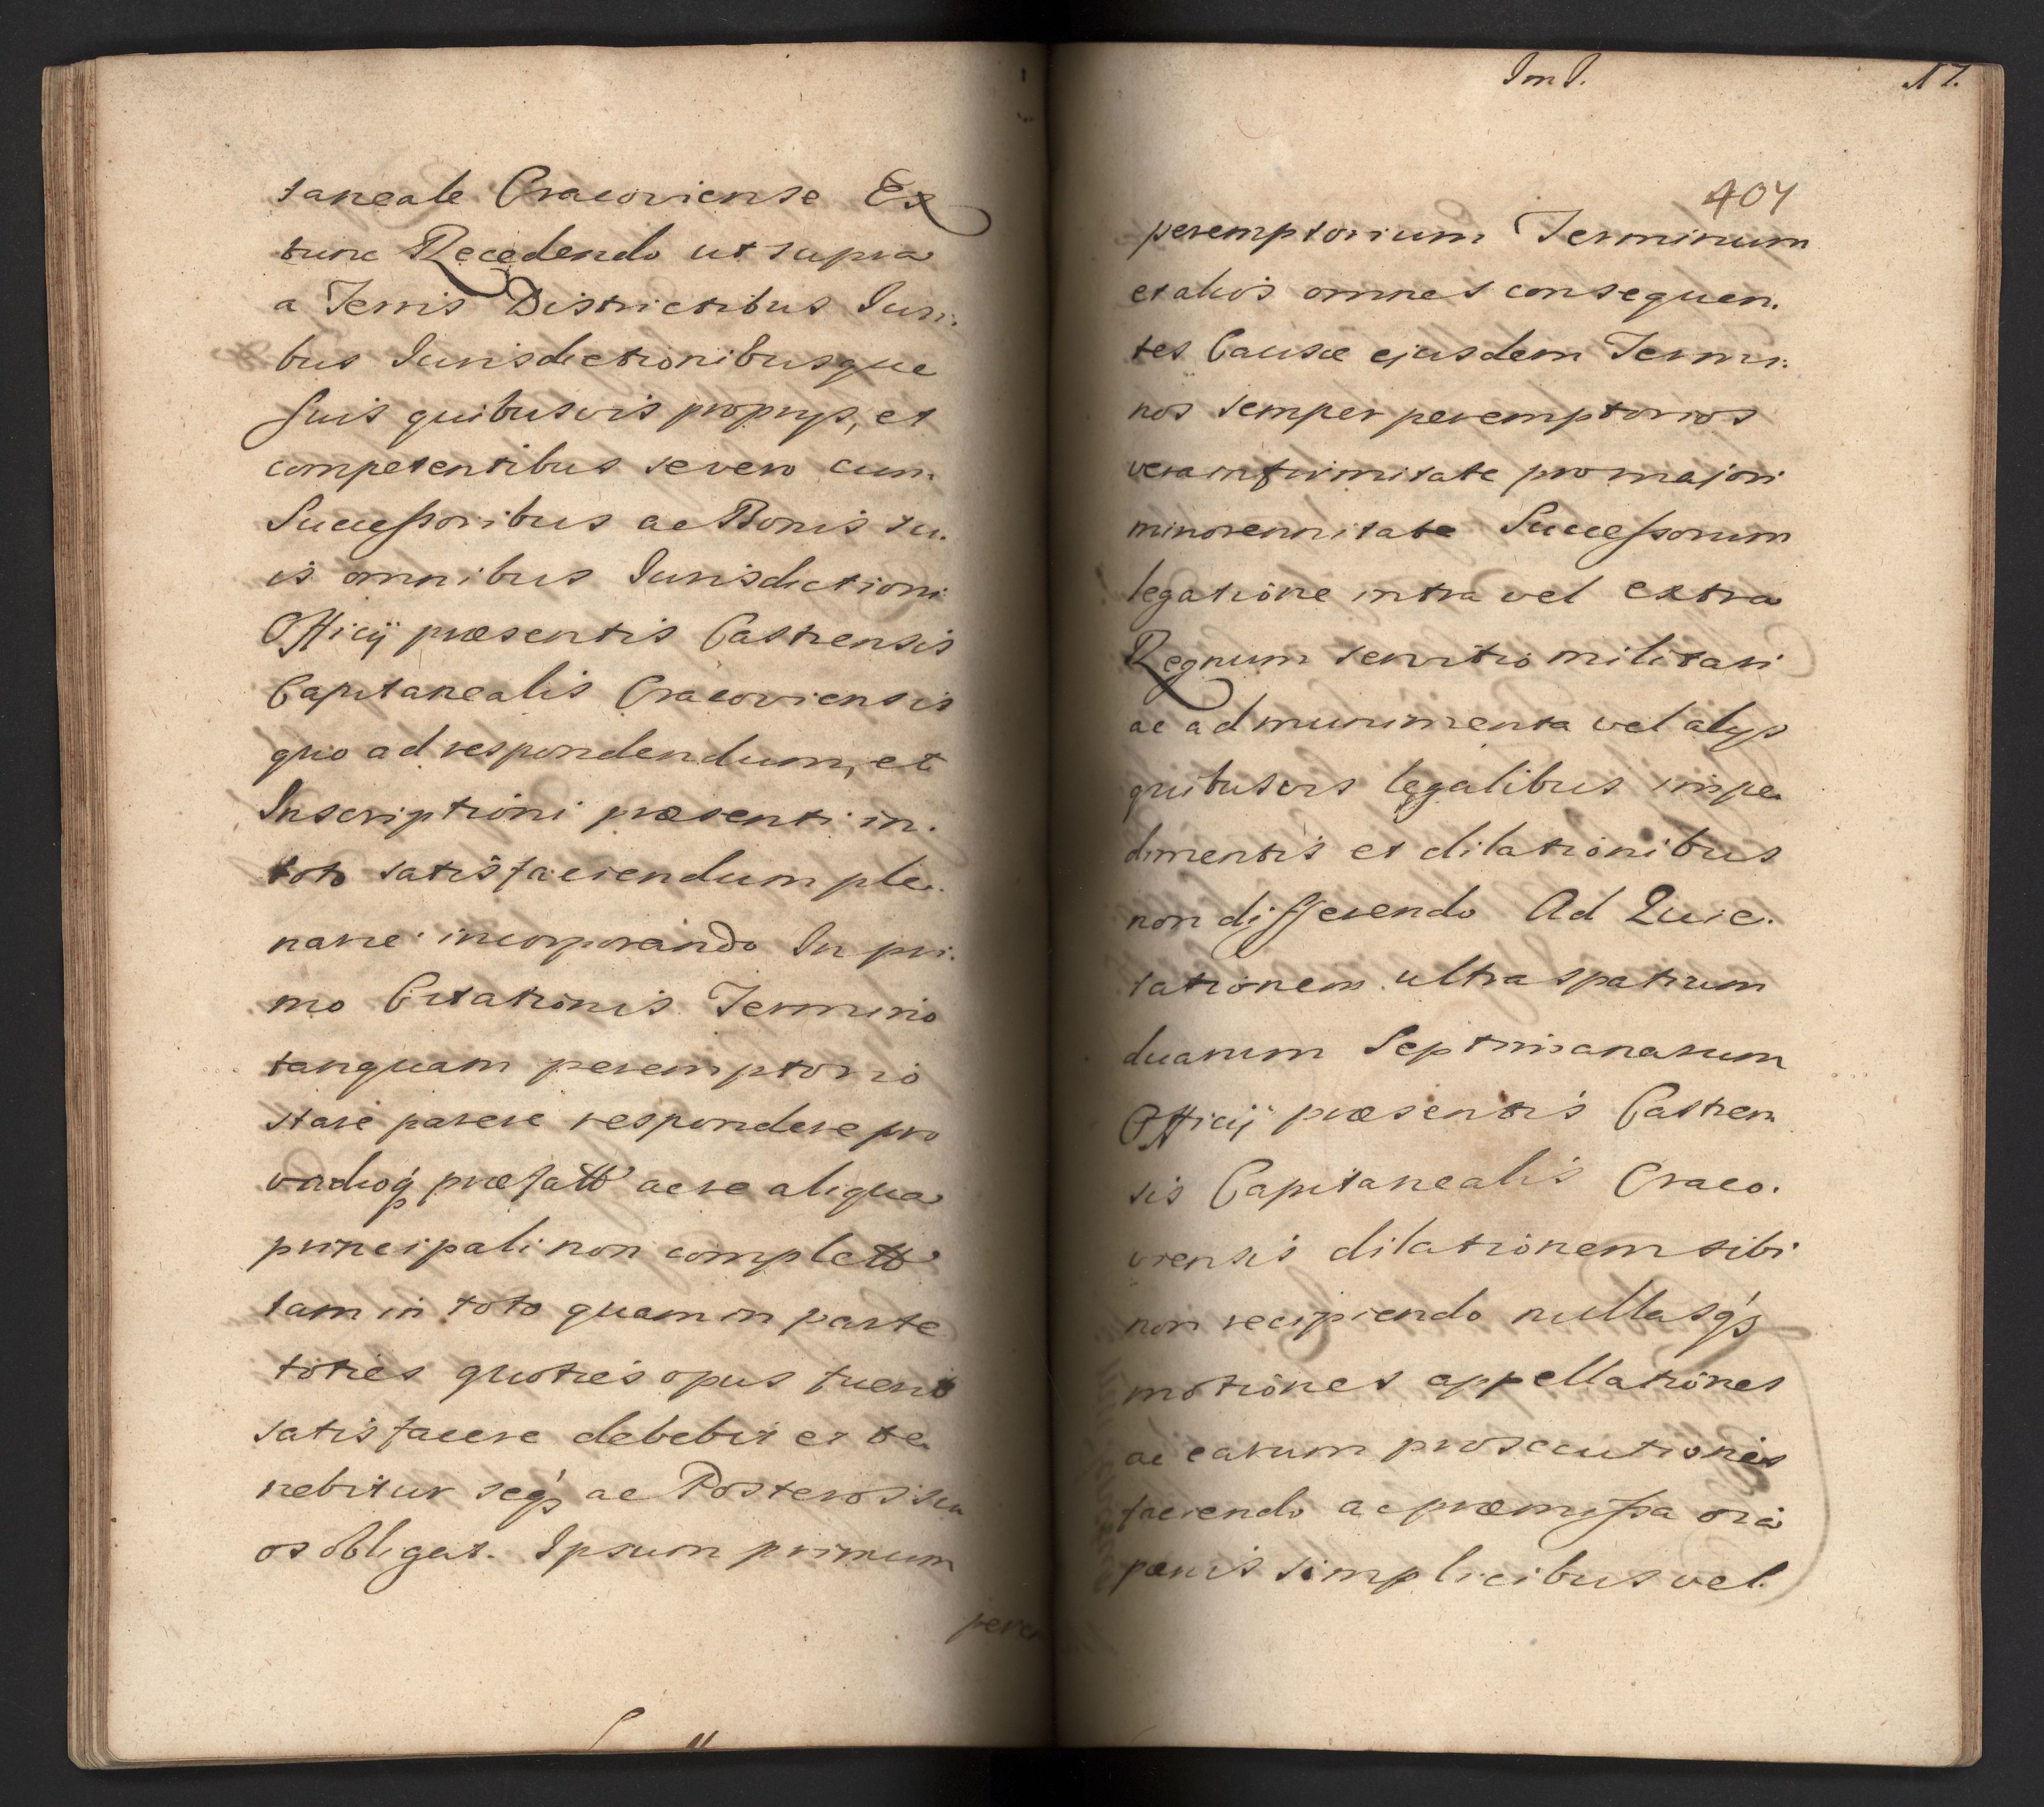 taneale Cracoviense Ex
tunc Recedendo ut supra
a Terris Districtibus Juri.
bus Jurisdictionibusque
suis quibusvis proprijs, et
competentibus se vero cum
Successoribus ac Bonis su.
is omnibus Jurisdictioni
Officij præsentis Castrensis
Capitanealis Cracoviensis
quo ad respondendum, et
Inscriptioni præsenti in.
toto satisfaciendum ple.
narie incorporando In pri.
mo Citationis Termino
tanquam peremptorio
stare parere respondere pro
præfatt aere aliqua
principali non complett
tam in toto quam in parte
toties quoties opus fuerit
satisfacere debebit et te
nebitur seq; ac Posteros su
os obligat. Ipsum primum
perem
Im J. 17.
404
peremptorium Terminum
et alios omnes consequen.
tes Causæ ejusdem Termi.
nos semper peremptorios
vera infirmitate pro majori
minorennitate Successorum
legatione intra vel extra
Regnum servitio militari
ac ad munimenta vel alijs
quibusvis legalibus impe
dimentis et dilationibus
non differendo Ad Quie.
tationem ultra spatium
duarum Septimanarum
Officij præsentis Castren
sis Capitanealis Craco.
viensis dilationem sibi
non recipiendo nullasq;
motiones appellationes
ac earum prosecutiones
faciendo ac præmissa oia
pænis simplicibus vel.